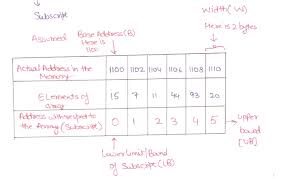 Subscript
Assumed
Base Address (B)
Here is
1100
Width (W)
Here is 2 bytes
Actual Address in the
Memory
1100 1102 1104 1106 1108 1110
Elements of
array
15 7 11 44 93 20
Address with respect to
the Array (Subscript)
0 1 2 3 4 5
upper
bound
(UB)
Lower Limit/Bound
of Subscript (LB)